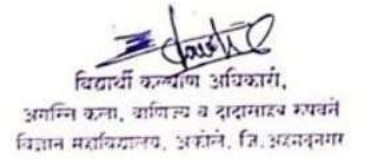 विद्यार्थी कल्याण अधिकारी,
अगस्ति कला, वाणिज्य व दादासाहेब रुपवते
विज्ञान महाविद्यालय, अकोले, जि. अहमदनगर